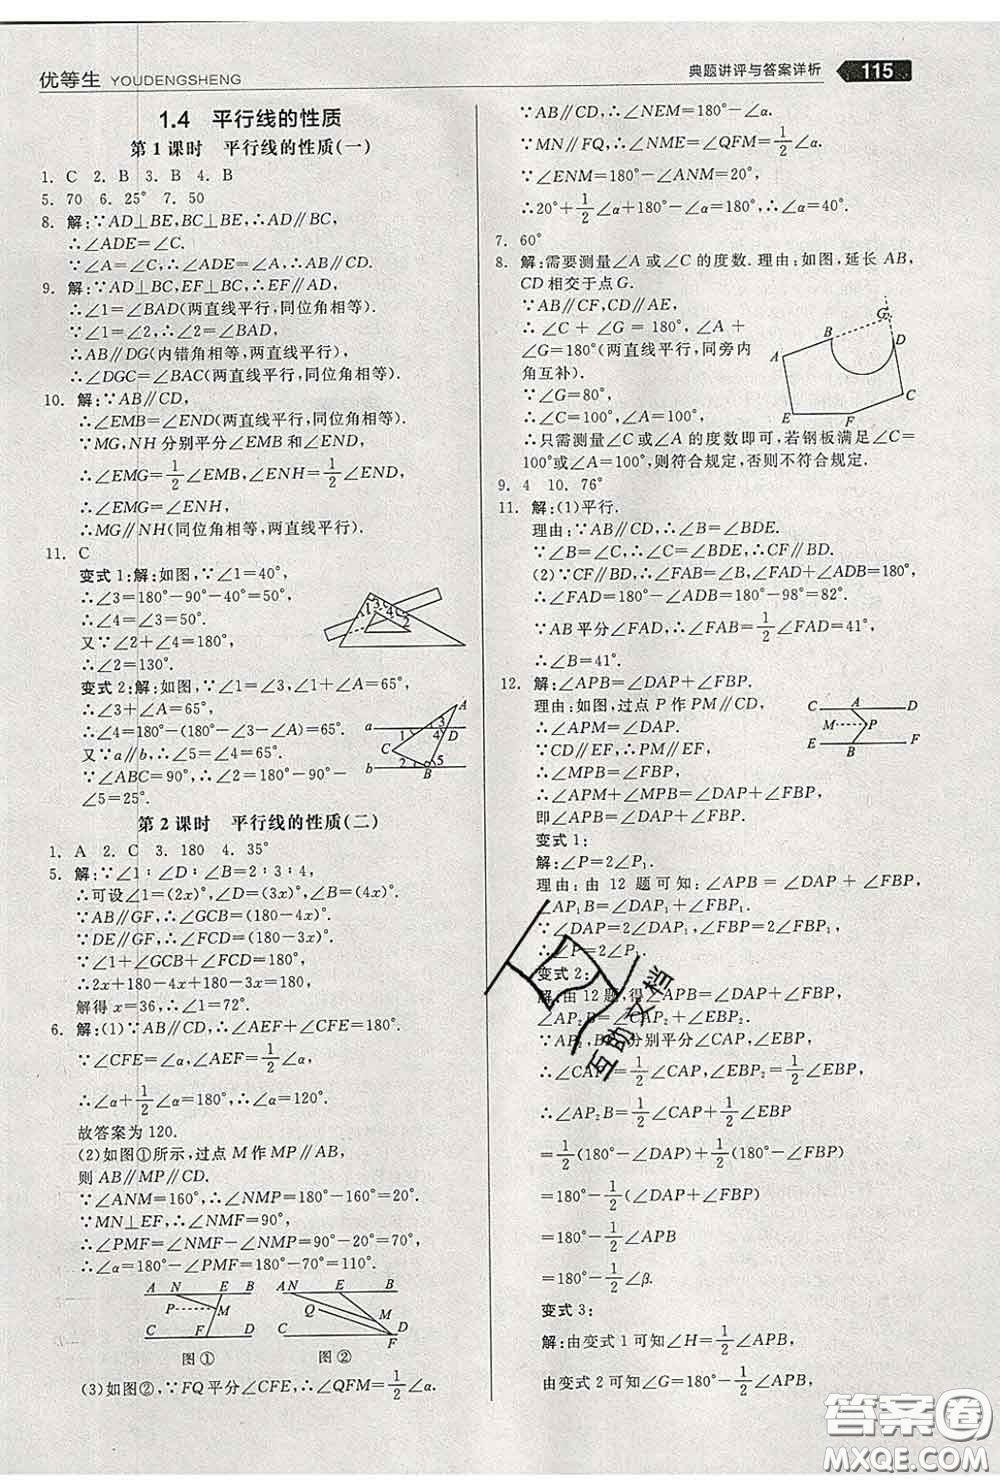 优等生 YOUDENGSHENG
典题讲评与答案详析 115
1.4 平行线的性质
第1课时 平行线的性质(一)
1. C 2. B 3. B 4. B
5. 70 6. 25° 7. 50
8. 解:∵AD⊥BE,BC⊥BE,∴AD∥BC,
∴∠ADE=∠C.
∵∠A=∠C,∴∠ADE=∠A,∴AB∥CD.
9. 解:∵AD⊥BC,EF⊥BC,∴EF∥AD,
∴∠1=∠BAD(两直线平行,同位角相等).
∵∠1=∠2,∴∠2=∠BAD,
∴AB∥DG(内错角相等,两直线平行),
∴∠DGC=∠BAC(两直线平行,同位角相等).
10. 解:∵AB∥CD,
∴∠EMB=∠END(两直线平行,同位角相等).
∵MG,NH分别平分∠EMB和∠END,
∴∠EMG=1/2∠EMB,∠ENH=1/2∠END,
∴∠EMG=∠ENH,
∴MG∥NH(同位角相等,两直线平行).
11. C
变式1:解:如图,∵∠1=40°,
∴∠3=180°-90°-40°=50°,
∴∠4=∠3=50°.
又∵∠2+∠4=180°,
∴∠2=130°.
变式2:解:如图,∵∠1=∠3,∠1+∠A=65°,
∴∠3+∠A=65°,
∴∠4=180°-(180°-∠3-∠A)=65°.
又∵a∥b,∴∠5=∠4=65°.
∵∠ABC=90°,∴∠2=180°-90°-
∠5=25°.
1 3 4 2
A a 1 3 4 D C b 2 5 B
第2课时 平行线的性质(二)
1. A 2. C 3. 180 4. 35°
5. 解:∵∠1∶∠D∶∠B=2∶3∶4,
∴可设∠1=(2x)°,∠D=(3x)°,∠B=(4x)°.
∵AB∥GF,∴∠GCB=(180-4x)°.
∵DE∥GF,∴∠FCD=(180-3x)°.
∵∠1+∠GCB+∠FCD=180°,
∴2x+180-4x+180-3x=180,
解得x=36,∴∠1=(2x)°=72°.
6. 解:(1)∵AB∥CD,∴∠AEF+∠CFE=180°.
∵∠CFE=∠α,∠AEF=1/2∠α,
∴∠α+1/2∠α=180°,∴∠α=120°.
故答案为120.
(2)如图①所示,过点M作MP∥AB,
则AB∥MP∥CD.
∵∠ANM=160°,∴∠NMP=180°-160°=20°.
∵MN⊥EF,∴∠NMF=90°,
∴∠PMF=∠NMF-∠NMP=90°-20°=70°,
∴∠α=180°-∠PMF=180°-70°=110°.
A N E B P M C F D
图①
A N E B Q M C F D
图②
(3)如图②,∵FQ平分∠CFE,∴∠QFM=1/2∠α.
∵AB∥CD,∴∠NEM=180°-∠α.
∵MN∥FQ,∴∠NME=∠QFM=1/2∠α.
∵∠ENM=180°-∠ANM=20°,
∴20°+1/2∠α=∠α,∴∠α=40°.
7. 60°
8. 解:需要测量∠A或∠C的度数.理由:如图,延长AB,
CD相交于点G.
∵AB∥CF,CD∥AE,
∴∠C+∠G=180°,∠A+
∠G=180°(两直线平行,同旁内
角互补).
∵∠G=80°,
∴∠C=100°,∠A=100°,
∴只需测量∠C或∠A的度数即可,若钢板满足∠C=
100°或∠A=100°,则符合规定,否则不符合规定.
G B D A C E F
9. 4 10. 76°
11. 解:(1)平行.
理由:∵AB∥CD,∴∠B=∠BDE.
∵∠B=∠C,∴∠C=∠BDE,∴CF∥BD.
(2)∵AB∥CD,∴∠FAB=∠C,∴∠FAB=∠B,
∴∠FAD=180°-∠ADB=180°-98°=82°.
∵AB平分∠FAD,∴∠FAB=1/2∠FAD=41°,
∴∠B=41°.
12. 解:∠APB=∠DAP+∠FBP.
理由:如图,过点P作PM∥CD,
∴∠APM=∠DAP.
∵CD∥EF,∴PM∥EF,
∴∠MPB=∠FBP,
∴∠APM+∠MPB=∠DAP+∠FBP,
即∠APB=∠DAP+∠FBP.
C A D M P E B F
变式1:
解:∠P=2∠P₁.
理由:由12题可知:∠APB=∠DAP+∠FBP,
∠AP₁B=∠DAP₁+∠FBP₁.
∵∠DAP=2∠DAP₁,∠FBP=2∠FBP₁,
∴∠P=2∠P₁.
变式2:
解:由12题,得∠AP₂B=∠CAP₂+∠EBP₂.
分别平分∠CAP,∠EBP,
∴∠CAP₂=1/2∠CAP,∠EBP₂=1/2∠EBP,
∴∠AP₂B=1/2∠CAP+1/2∠EBP
=1/2(180°-∠DAP)+1/2(180°-∠FBP)
=180°-1/2(∠DAP+∠FBP)
=180°-1/2∠APB
=180°-1/2∠β.
变式3:
解:由变式1可知∠H=1/2∠APB,
由变式2可知∠G=180°-1/2∠APB,
互助文档
答案圈
MXQE.COM